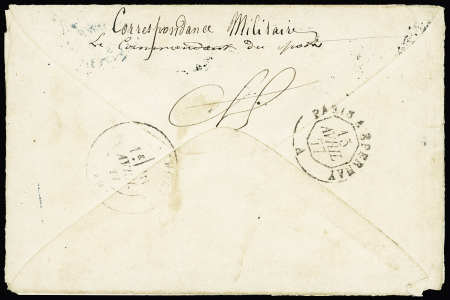 Correspondance Militaire
Le Commandant du poste
PARIS A EPERNAY
15
AVRIL
77